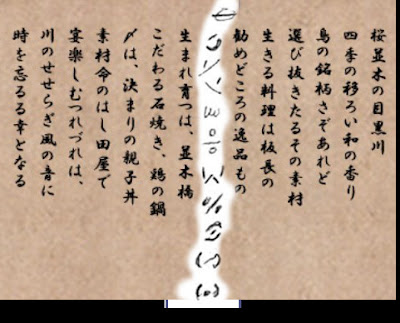 桜並木の目黒川
四季の移ろい和の香り
鳥の銘柄さぞあれど
選び抜きたるその素材
生きる料理は板長の
勧めどころの逸品もの
生まれ育つは、並木橋
こだわる石焼き、鶏の鍋
〆は、決まりの親子丼
素材命のはし田屋で
宴楽しむつれづれは、
川のせせらぎ風の音に
時を忘るる幸となる